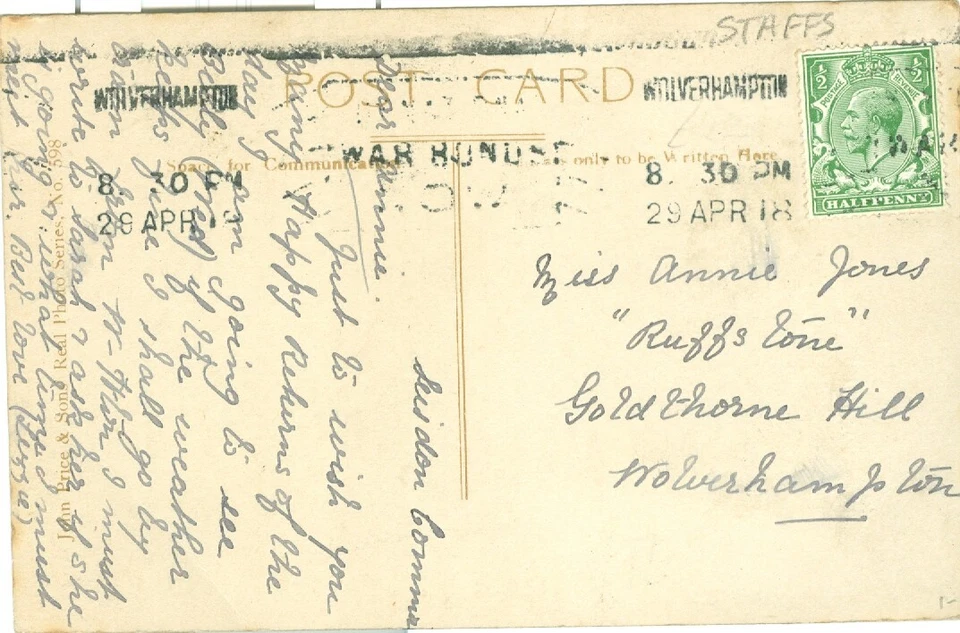 STAFFS
POST CARD
WOLVERHAMPTON
8. 30 PM
29 APR 18
WAR BONDS
NOW
WOLVERHAMPTON
8. 30 PM
29 APR 18
WAR
½ ½
POSTAGE REVENUE
HALFPENNY
Space for Communication
only to be Written Here
Miss Annie Jones
"Ruffstone"
Goldthorne Hill
Wolverhampton
Seisdon Common
Dear Annie.
Just to wish you
Many Happy Returns of the
day I am going to see
Betty most of the weather
keeps fine I shall go by
from W-ton I must
write to Sarah & ask her if she
is going & what time I must
meet her. Best love
John Price & Sons Real Photo Series. No. 598
1-